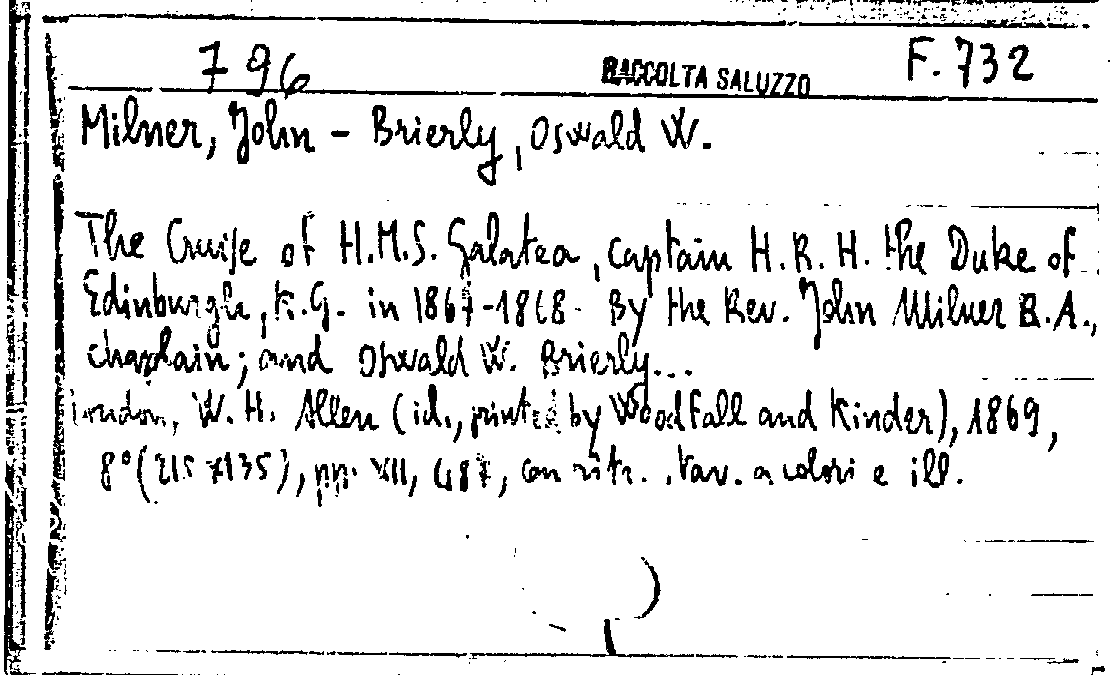 796 RACCOLTA SALUZZO F. 732
Milner, John - Brierly, Oswald W.
The Cruise of H.M.S. Galatea, captain H.R.H. the Duke of
Edinburgh, K.G. in 1867-1868. By the Rev. John Milner B.A.,
chaplain; and Oswald W. Brierly...
London, W.H. Allen (id., printed by Woodfall and Kinder), 1869,
8° (215x135), pp. XII, 487, con ritr., tav. a colori e ill.